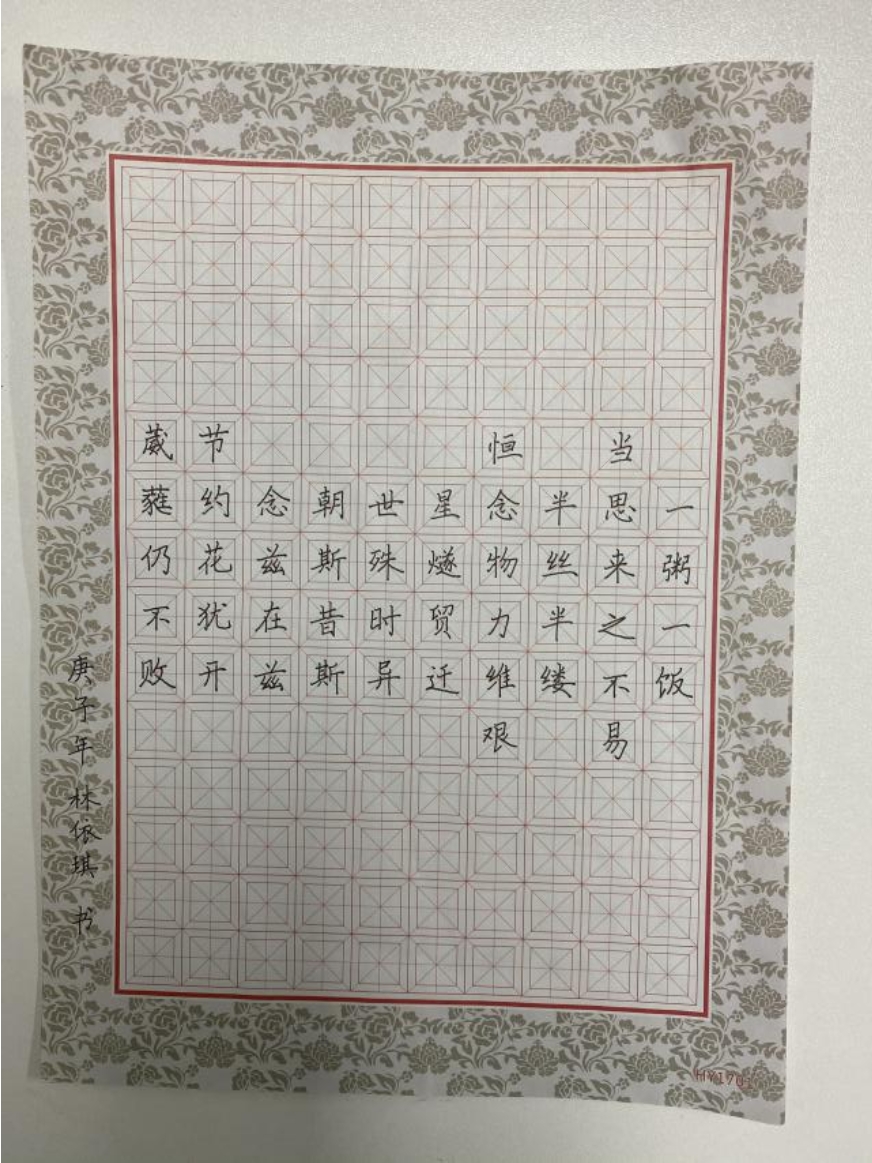 一粥一饭
当思来之不易
半丝半缕
恒念物力维艰
星燧贸迁
世殊时异
朝斯昔斯
念兹在兹
节约花犹开
葳蕤仍不败
庚子年 林依琪 书